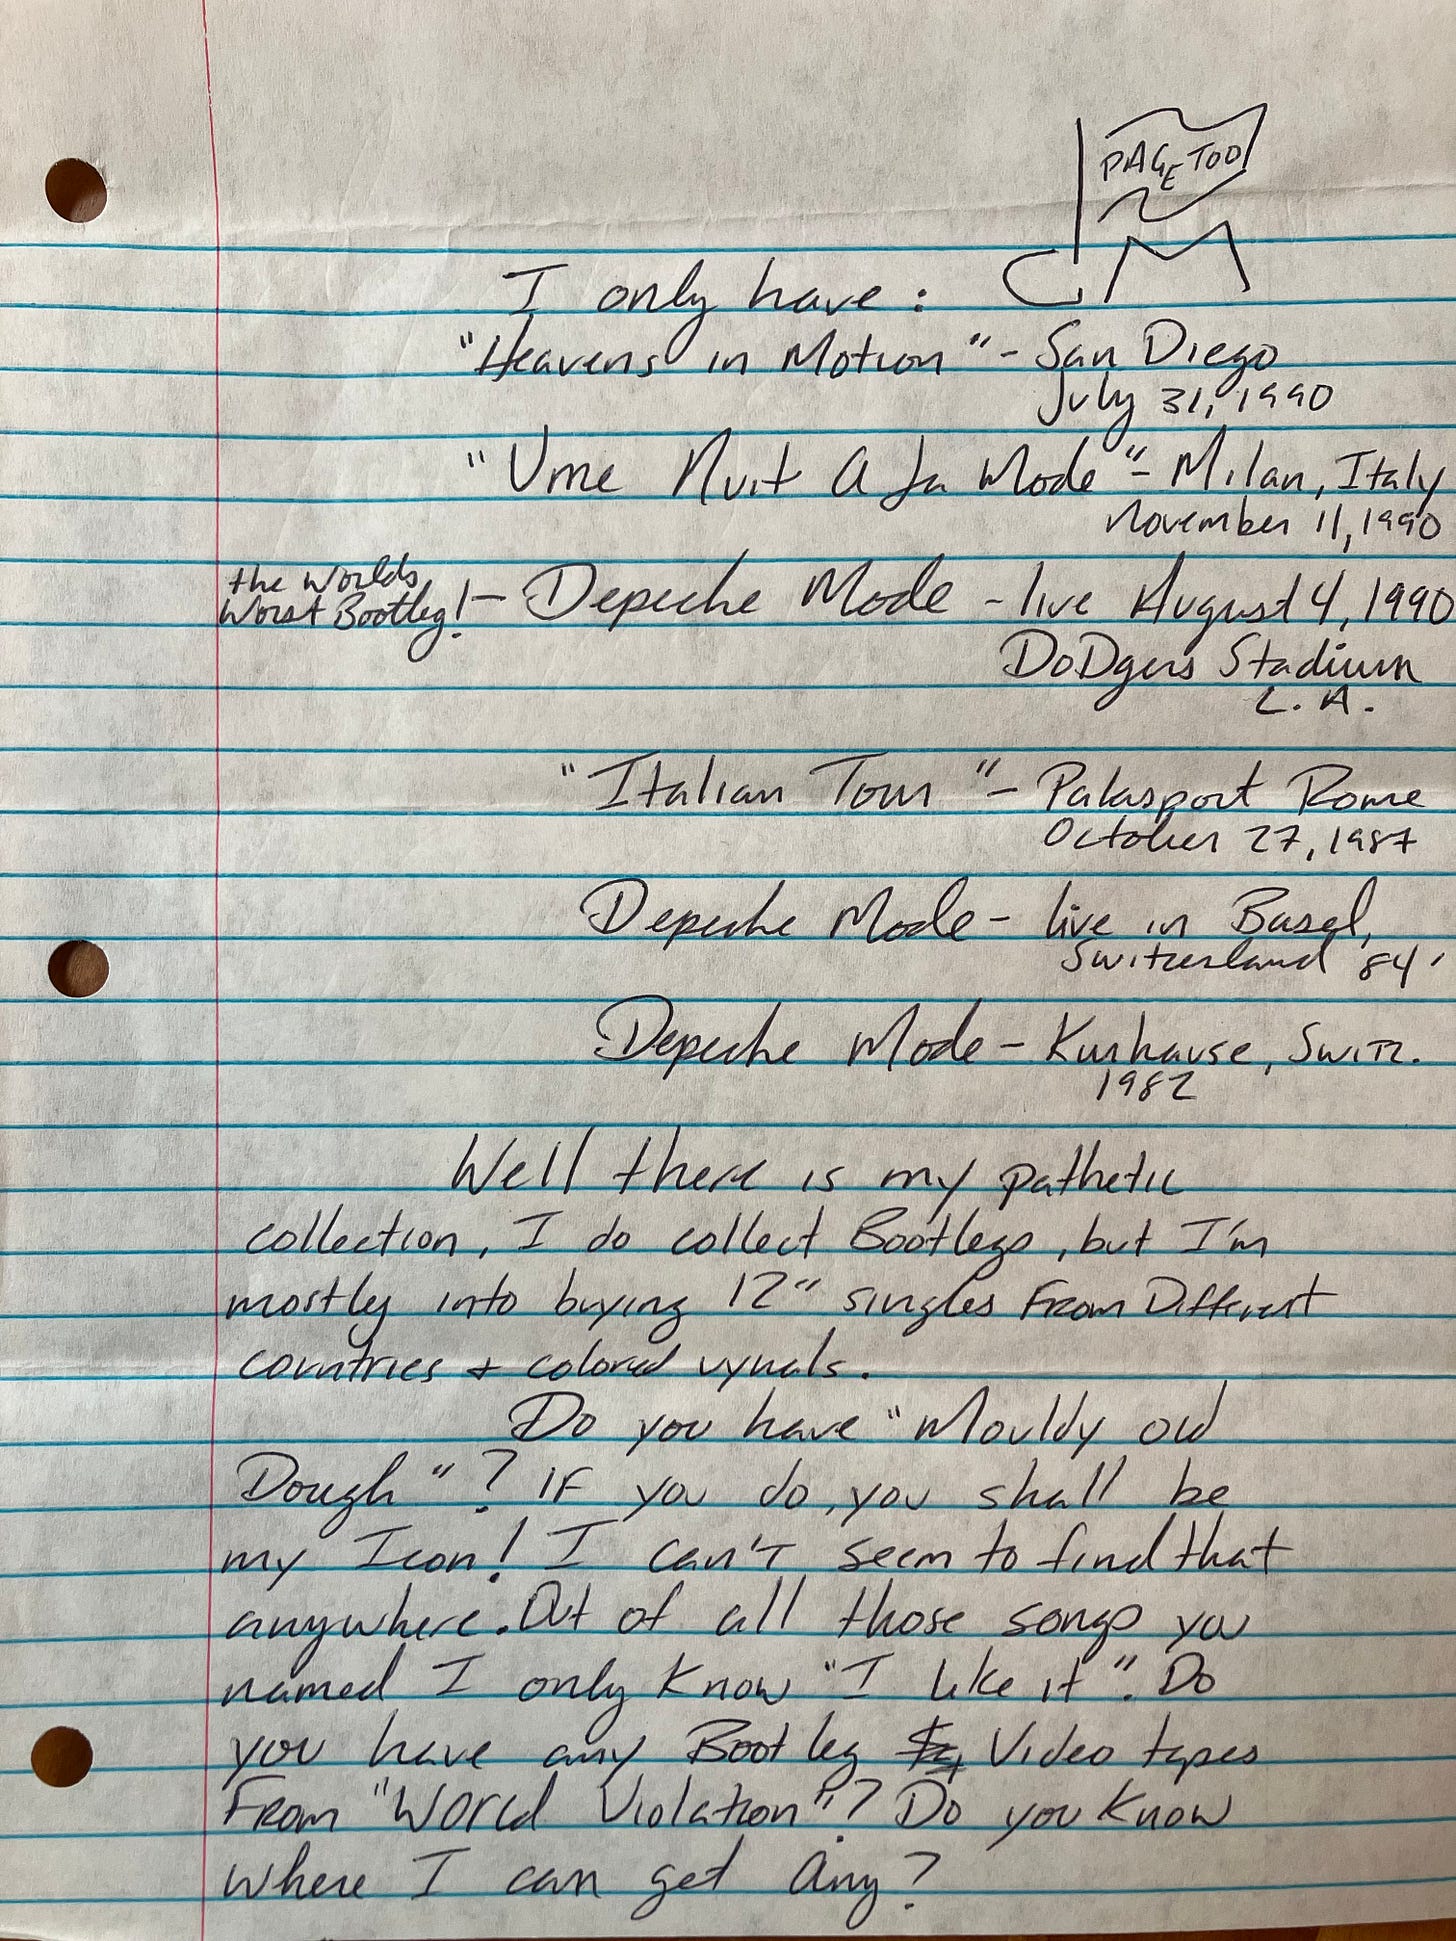 PAGE TOO
I only have :
"Heavens in Motion" - San Diego
July 31, 1990
"Ume Nuit A La Mode" - Milan, Italy
November 11, 1990
the Worlds
Worst Bootleg! - Depeche Mode - live August 4, 1990
DoDgers Stadium
L. A.
"Italian Tour" - Palasport Rome
October 27, 1987
Depeche Mode - live in Basel,
Switzerland 84'
Depeche Mode - Kurhause, Switz.
1982
Well there is my pathetic
collection, I do collect Bootlegs, but I'm
mostly into buying 12" singles From Different
countries + colored vynals.
Do you have "Mouldy old
Dough"? IF you do, you shall be
my Icon! I can't seem to find that
anywhere. Out of all those songs you
named I only Know "I like it". Do
you have any Bootleg Video tapes
From "World Violation"? Do you Know
where I can get any?